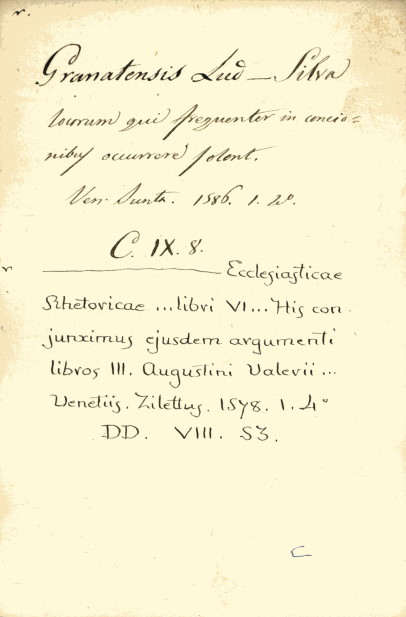 Granatensis Lud — Silva
locorum qui frequenter in concio=
nibus occurrere solent.
Ven. Junta. 1586. 1. 4°.
C. IX. 8.
Ecclesiasticae
Rhetoricae ... libri VI ... His con
junximus ejusdem argumenti
libros III. Augustini Valerii ...
Venetiis. Zilettus. 1578. 1. 4°
DD. VIII. 53.
C